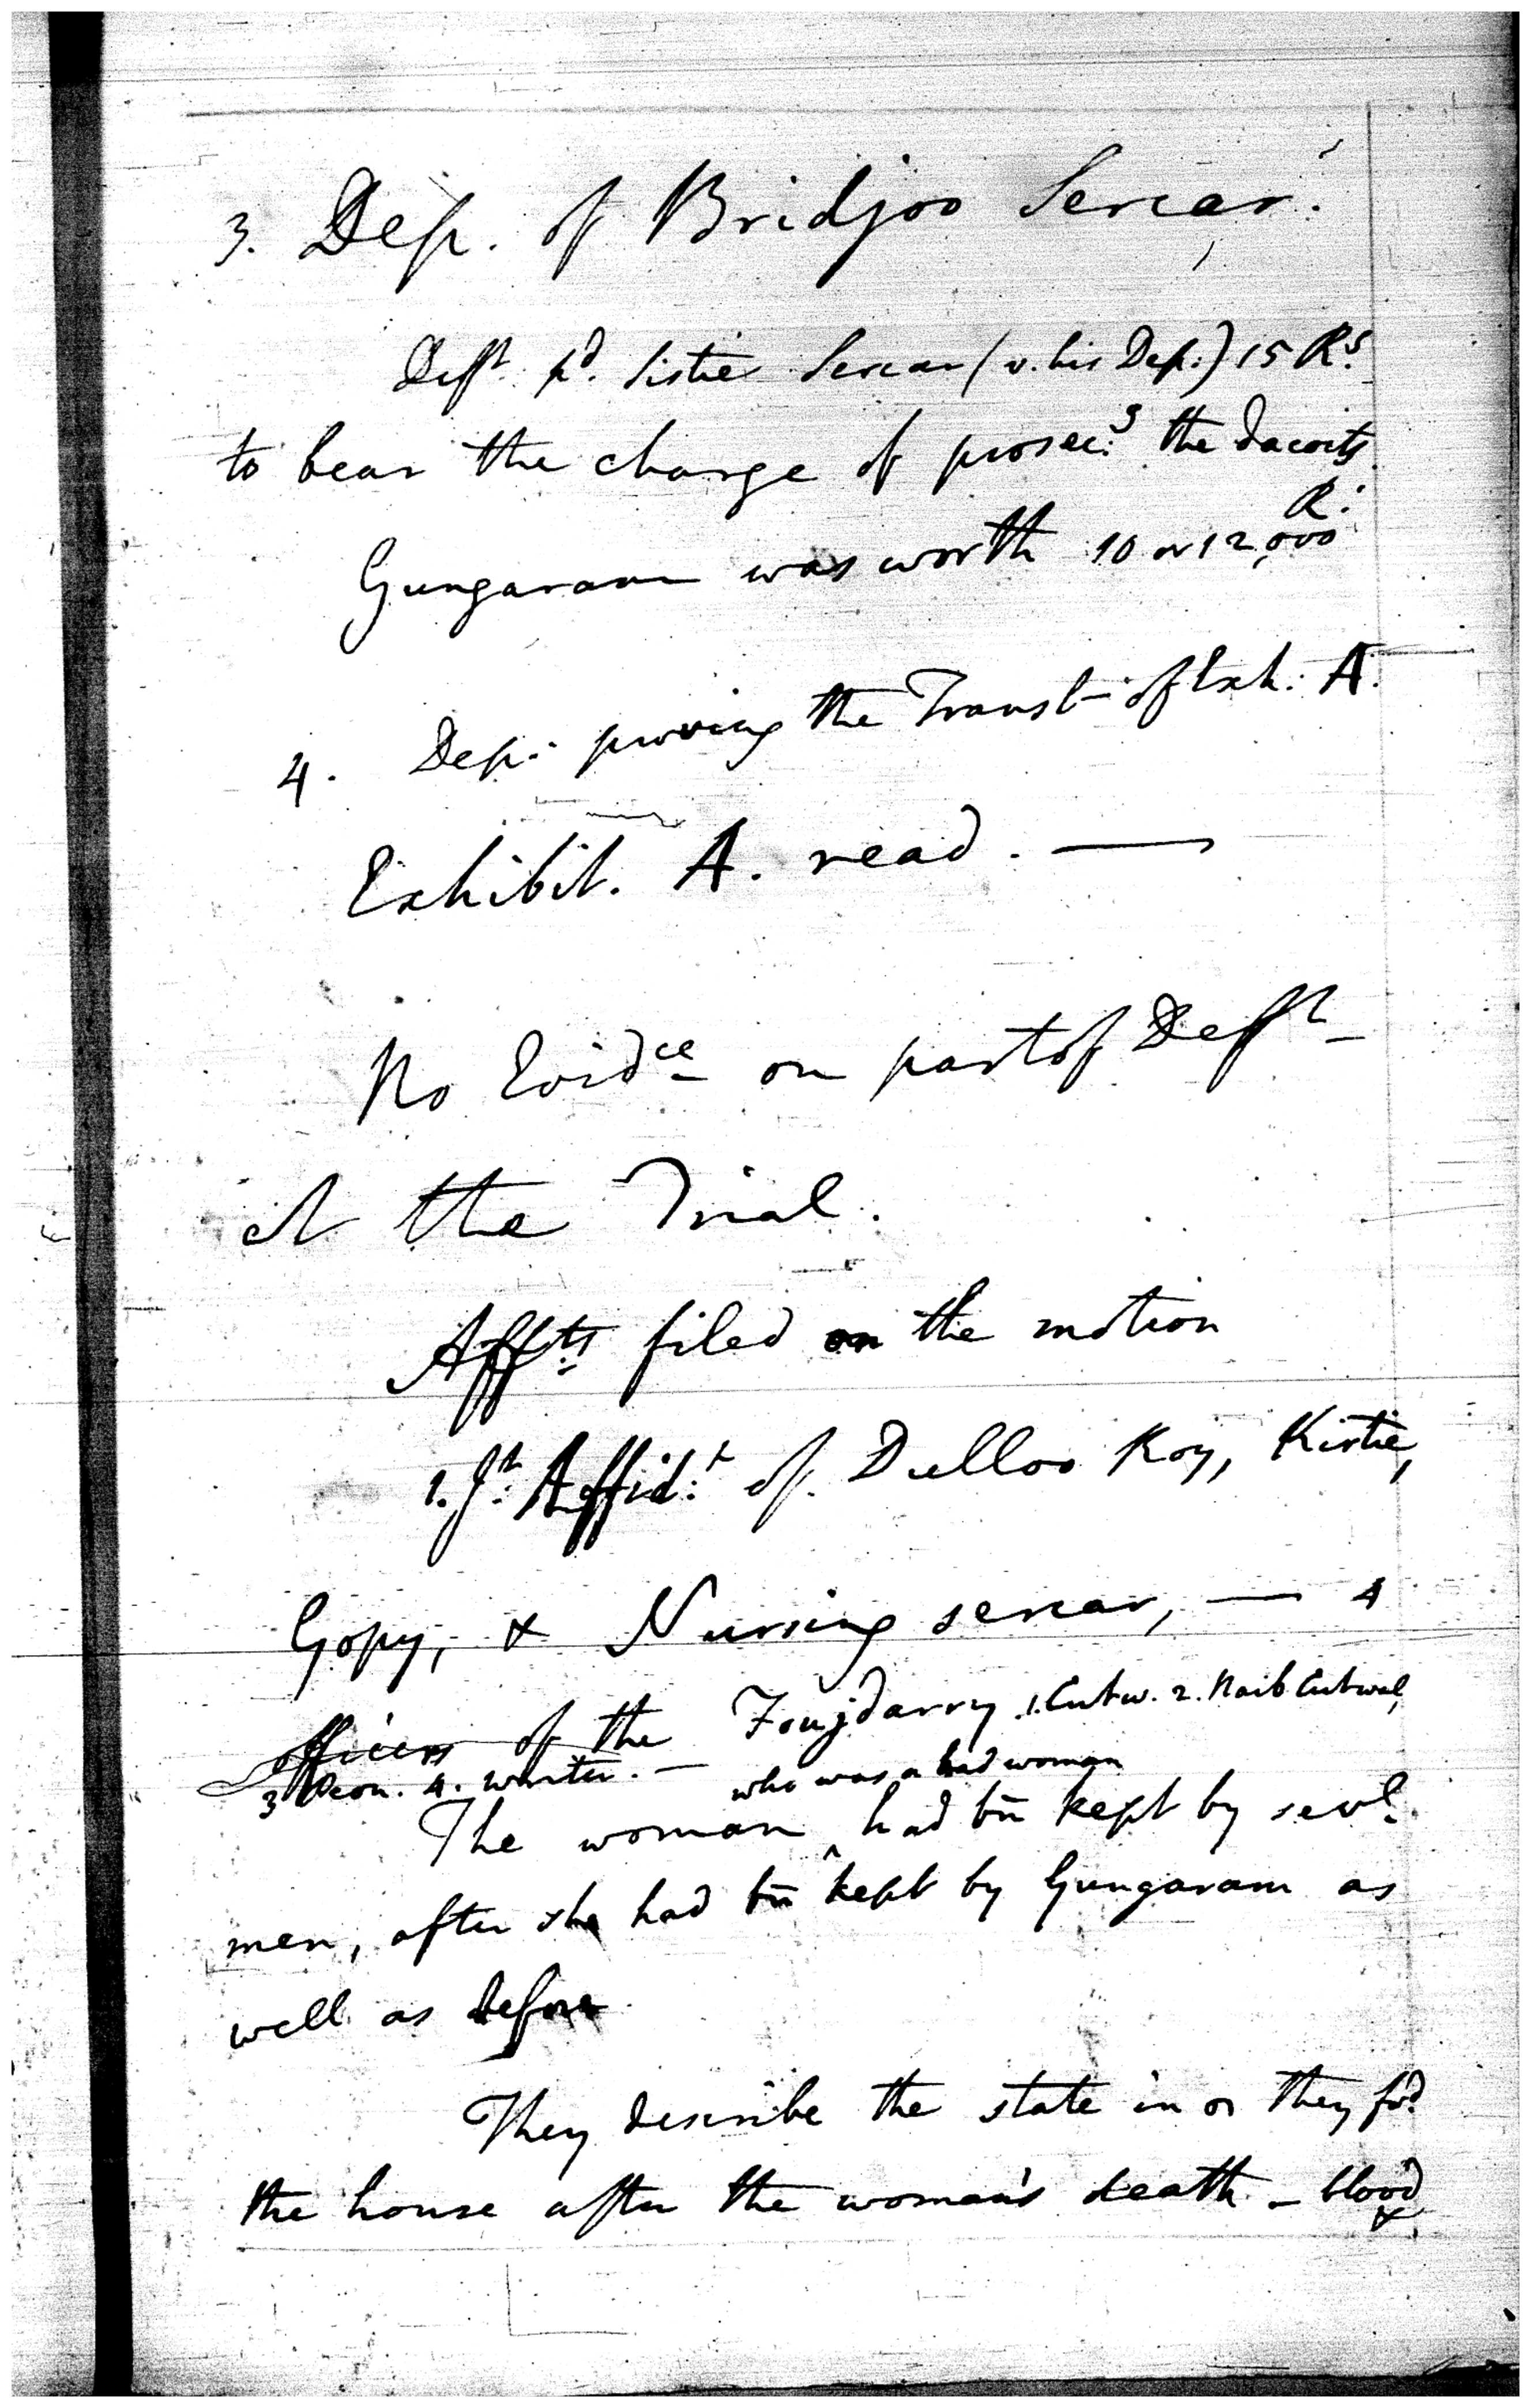 3. Dep. of Bridjoo Sercar.
Defft pd. Sistie Sercar (v. his Dep.) 15 Rs.
to bear the charge of prosecg. the dacoits
Gungaram was worth 10 or 12,000 R.
4. Dep. proving the Transl- of Exh. A.
Exhibit. A. read. —
No Evidce on part of Defft-
At the Trial.
Affts filed on the motion
1. Jt. Affid.t of Dulloo Roy, Kistie,
Gopy, & Nursing sercar, — 4
officers of the Foujdarry 1. Cutw. 2. Naib Cutwal,
3 Peon. 4. writer. —
The woman ^ who was a bad woman had bn kept by sevl.
men, after she had bn kept by Gungaram as
well as before
They describe the state in they fd.
the house after the woman's death - blood &